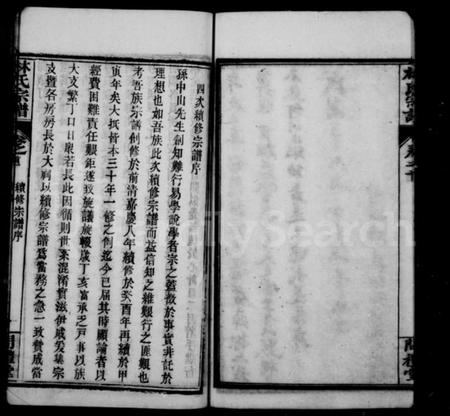 四次續修宗譜序
孫中山先生創知難行易學說學者宗之蓋徵於事實非託於
理想也如吾族此次續修宗譜而益信知之維艱行之匪艱也
考吾族宗譜創修於前清嘉慶八年續修於癸酉年再續於甲
寅年矣大抵皆本三十年一修之例迄今已屆其時顧論者以
經費困難責任艱鉅遂致旋議旋輟歲丁亥富承乏戶事以族
大支繁丁口日眾若長此因循則世系混淆實滋伊戚爰集宗
支暨各房房長於大祠以續修宗譜為當務之急一致贊成當
林氏宗譜
卷之首
續修宗譜序
FamilySearch